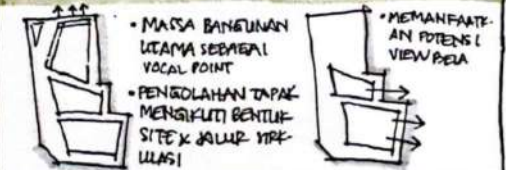 • MASSA BANGUNAN
UTAMA SEBAGAI
VOCAL POINT
• PENGOLAHAN TAPAK
MENGIKUTI BENTUK
SITE & JALUR SIRK-
ULASI
• MEMANFAATK-
AN POTENSI
VIEW